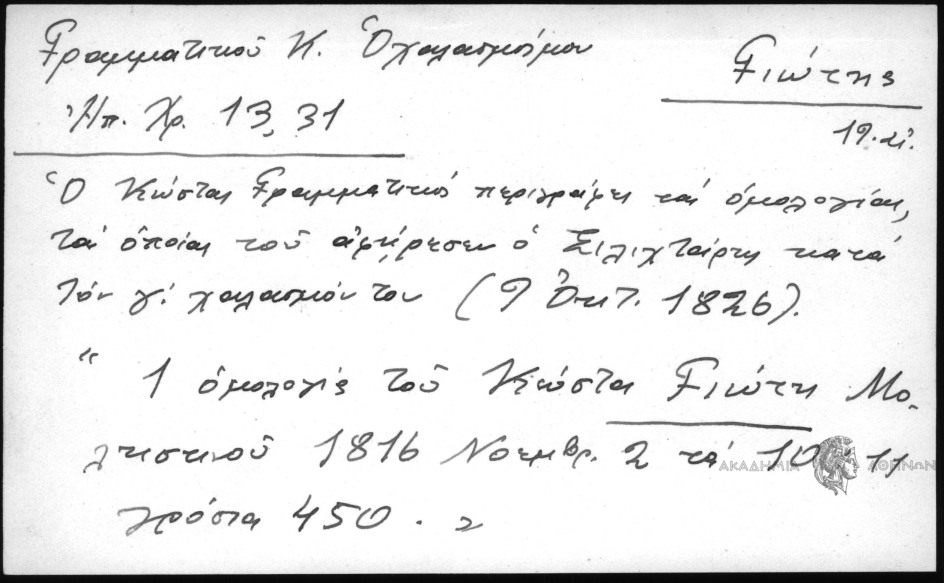 Γραμματικοῦ Κ. Ὁ χαλασμός μου
Γιώτης
Ἠπ. Χρ. 13, 31
19. αἰ.
Ὁ Κώστας Γραμματικός περιγράφει τάς ὁμολογίας,
τάς ὁποίας τοῦ ἀφῄρεσεν ὁ Σιλιχτάρης κατά
τόν γ΄. χαλασμόν του (9 Ὀκτ. 1826).
" 1 ὁμολογίες τοῦ Κώστα Γιώτη Μο-
λιστινοῦ 1816 Νοεμβρ. 2 τά 10 11
γρόσια 450.
ΑΚΑΔΗΜΙΑ ΑΘΗΝΩΝ